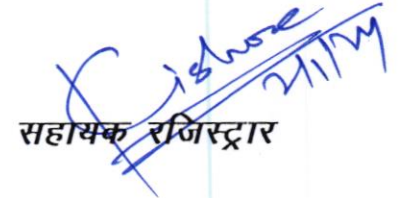 Kishore
सहायक रजिस्ट्रार